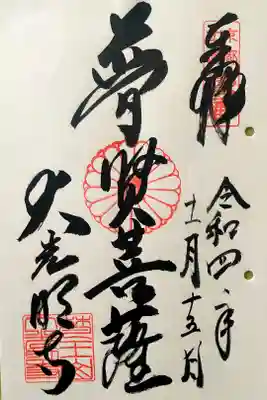 奉拝
令和四年
十一月十五日
普賢菩薩
大光明寺